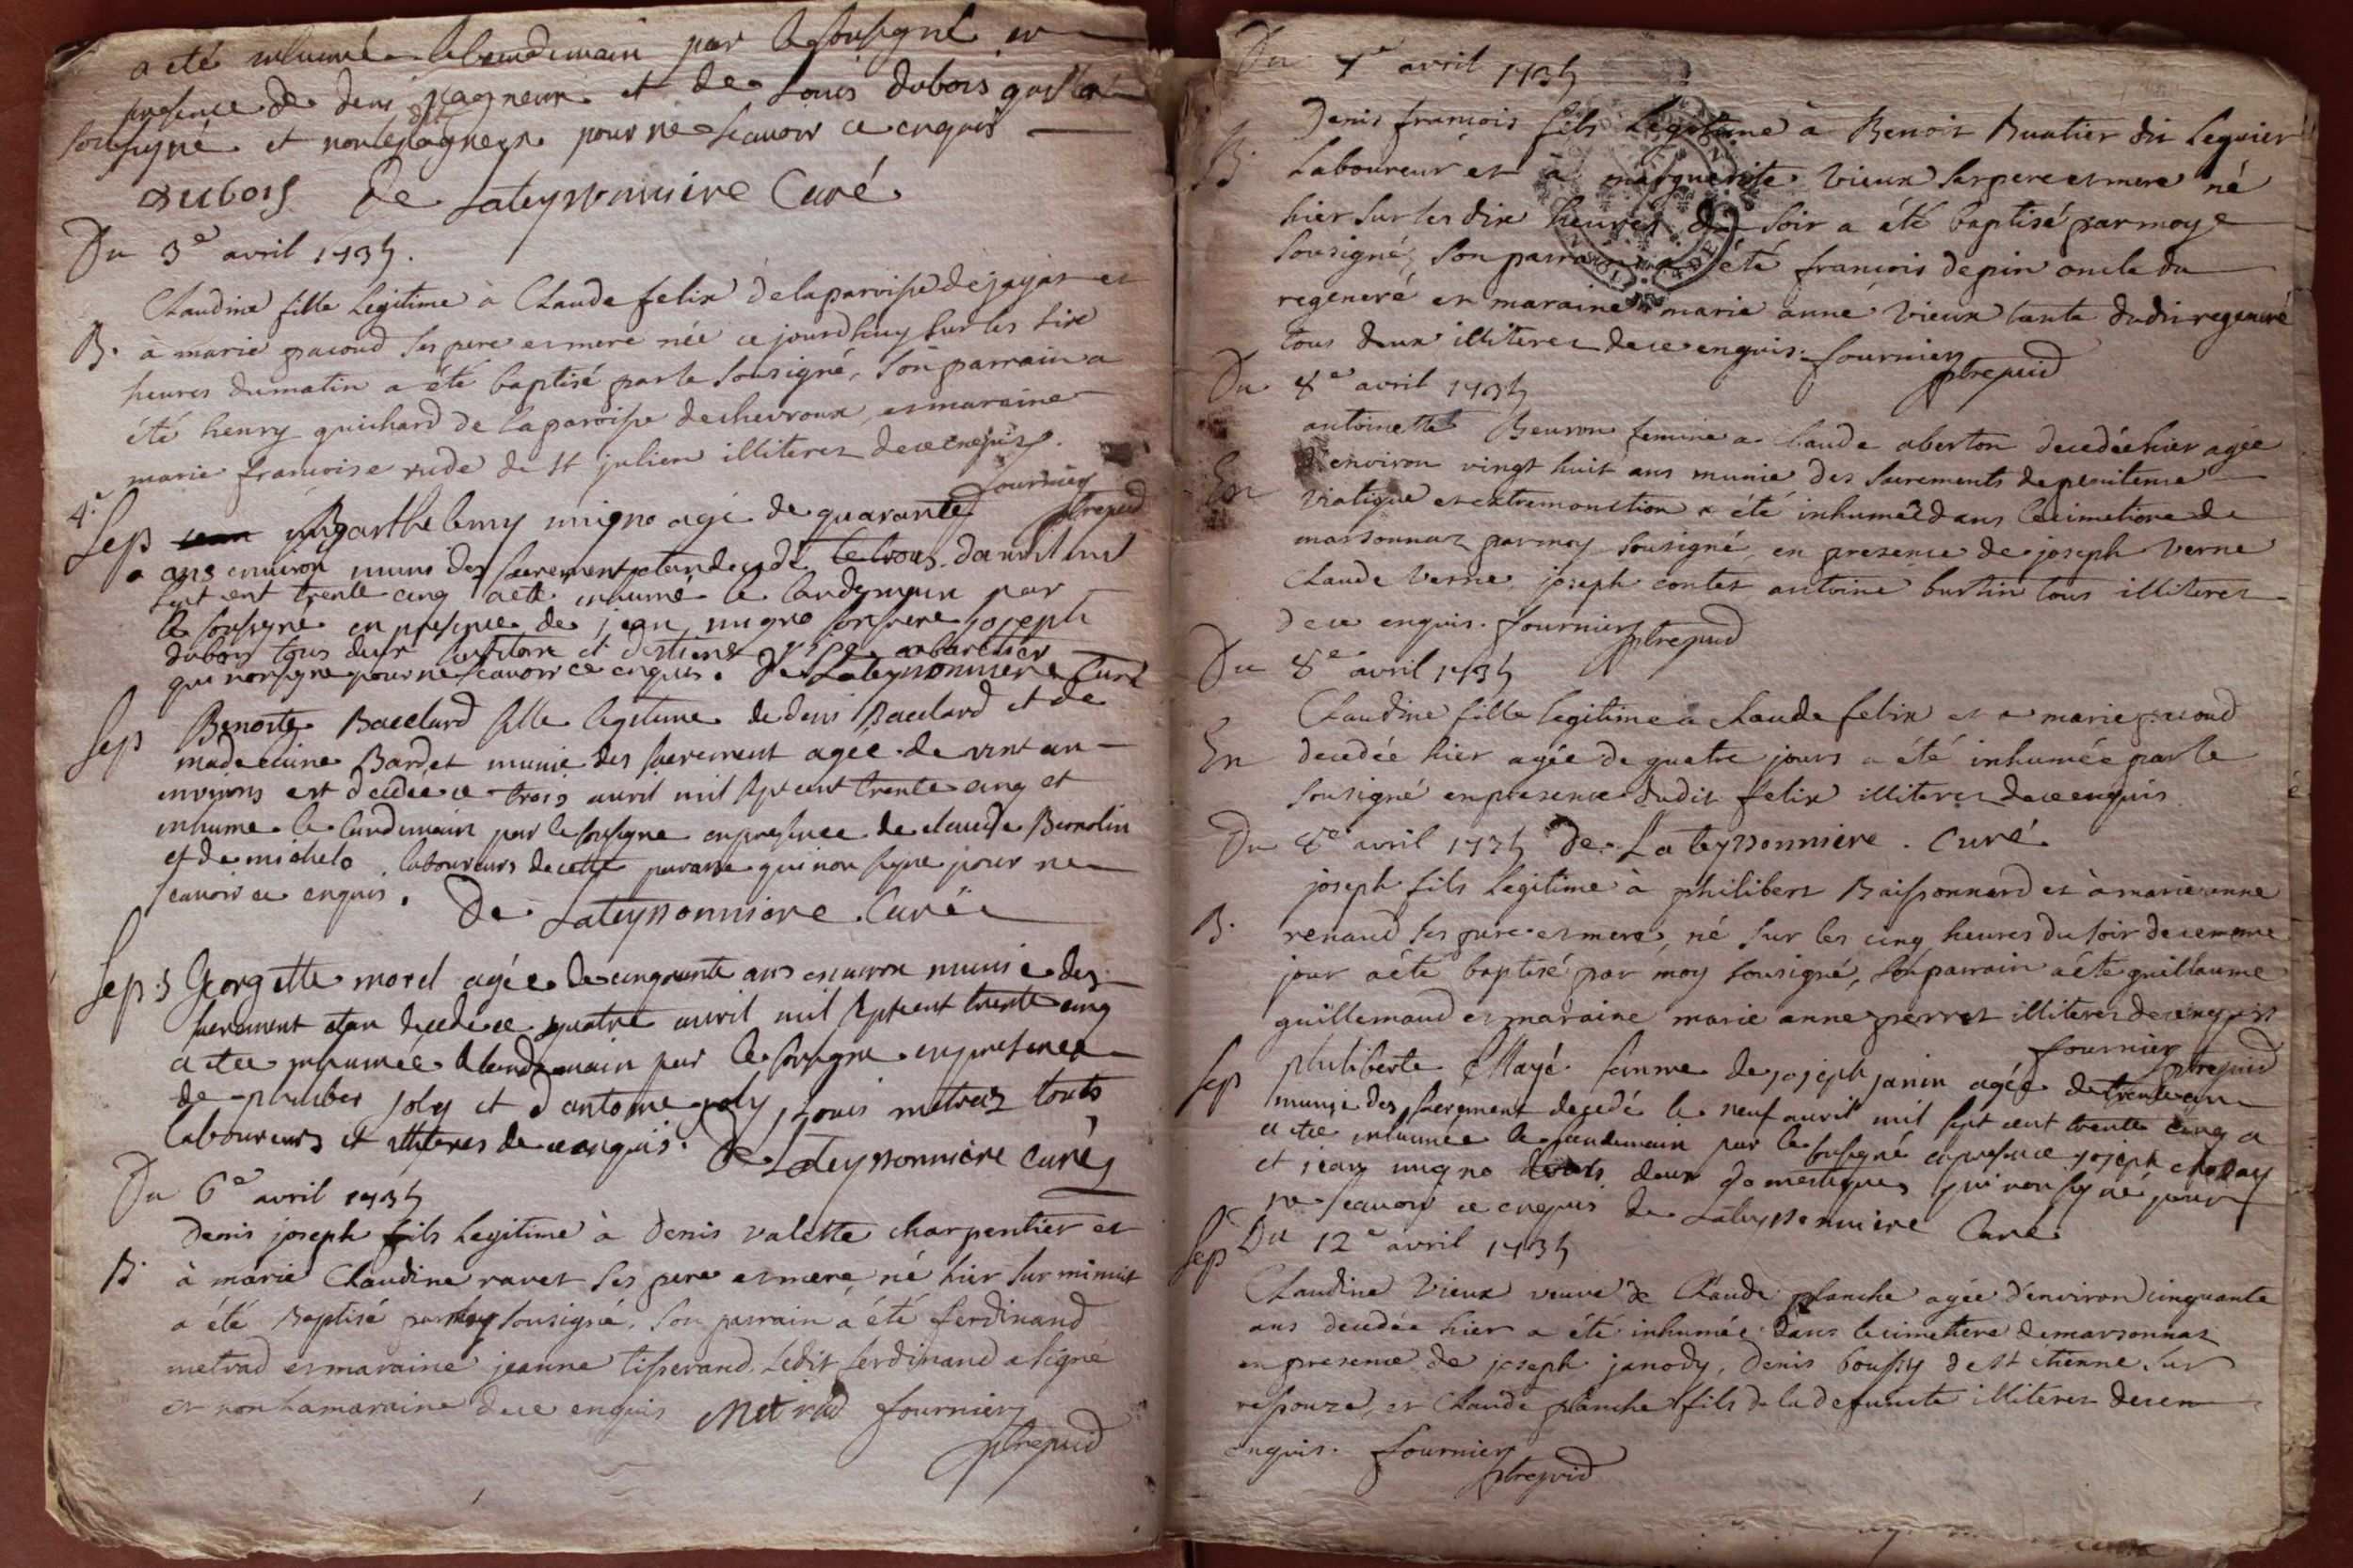 a été inhumé le lendemain par le sousigné en
presence de denis pagneux et de Louis dubois qui a
sousigné et non le dit pagneux pour ne scavoir ce enquis
Dubois De Lateyssonniere Curé
Du 3e avril 1735.
Claudine fille legitime à Claude felix de la paroisse de jayat et
B. à marie pacoud ses pere et mere née ce jourdhuy sur les six
heures du matin a été baptisé par le sousigné, son parrain a
été henry guichard de la paroisse de chevroux, et maraine
marie francoise rude de st julien illiteres de ce enquis.
fournier
ptre vic
4e
Sep Barthelemy migno agé de quarante
ans environ muni des sacrement etan decedé le trois davril mil
sept cent trente cinq a été inhumé le landemain par
le sousigné en presence de jean migno son frere joseph
dubois tous deux et
qui non signé pour ne scavoir ce enquis. De Lateyssonniere Curé
Sep Benoite Baselard fille legitime de denis Baselard et de
madeleine Bardet munie des sacrement agée de vint an
environs est decedée ce trois avril mil sept cent trente cinq et
inhume le landemain par le sousigne en presence de claude Bernolin
et de michelo laboureurs de cette paroisse qui non signe pour ne
scavoir ce enquis. De Lateyssonniere Curé
Sep 5 Georgette morel agée de cinquante ans environ munie des
sacrement etan decedée ce quatre avril mil sept cent trente cinq
a etee inhumée le landemain par le sousigne en presence
de philiber joly et d antoine joly, louis metraz touts
laboureurs et illiteres de ce enquis. De Lateyssonniere curé
Du 6e avril 1735
Denis joseph fils legitime à Denis valette charpentier et
B. à marie Claudine ravet ses pere et mere né hier sur minuit
a été Baptisé par moy sousigné. Son parrain a été ferdinand
metrad et maraine jeanne tisserand. Ledit ferdinand a signé
et non la maraine de ce enquis Metrad fournier
ptre vic
Du 7e avril 1735
Denis francois fils legitime à Benoit Buatier dit Leguier
B. Laboureur et à marguerite vieux ses pere et mere né
hier sur les dix heures du soir a été baptisé par moy
sousigné, son parrain a été francois depin oncle du
regeneré et maraine marie anne vieux tante dudit regeneré
tous deux illiteres de ce enquis. fournier
ptre vic
Du 8e avril 1735
antoinette Beuron femme a Claude aberton decedée hier agée
En d'environ vingt huit ans munie des sacrements de penitence
viatique et extremonction a été inhumée dans le cimetiere de
marsonnaz par moy sousigné en presence de joseph verne
Claude verne joseph contet antoine burtin tous illiteres
de ce enquis. fournier
ptre vic
Du 8e avril 1735
Claudine fille legitime a Claude felix et a marie pacoud
En decedée hier agée de quatre jours a été inhumée par le
sousigné en presence dudit felix illiteres de ce enquis
Du 8e avril 1735 De Lateyssonniere. Curé.
joseph fils legitime à philibert Baissonnard et à marie anne
B. renaud ses pere et mere, né sur les cinq heures du soir de ce meme
jour a été baptisé par moy sousigné, son parrain a été guillaume
guillemaud et maraine marie anne perret illiteres de ce enquis
fournier
ptre vic
Sep philiberte Mayé femme de joseph janin agée de trente an
munie des sacrement decedé le neuf avril mil sept cent trente cinq a
a etee inhumée le landemain par le sousigné en presence joseph
et jean migno touts deux domestiques qui non signé pour
ne scavoir ce enquis De Lateyssonniere Curé
Sep Du 12e avril 1735
Claudine vieux veuve de Claude planche agée d'environ cinquante
ans decedée hier a été inhumée dans le cimetiere de marsonnaz
en presence de joseph janody, denis boussy de st etienne sur
repouze, et Claude planche fils de la defuncte illiteres de ce
enquis. fournier
ptre vic